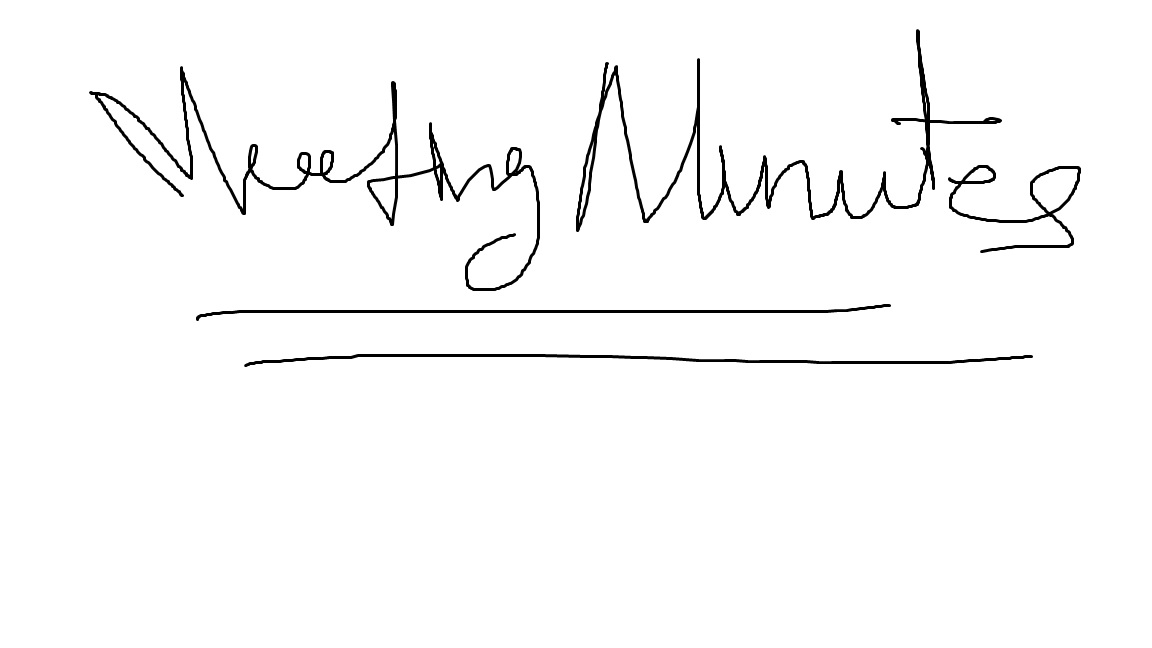 Meeting Minutes